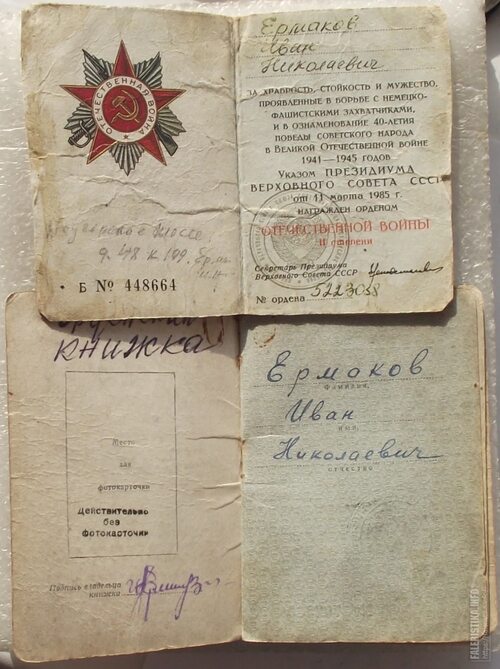 ОТЕЧЕСТВЕННАЯ ВОЙНА
д. 48 к 199
Б № 448664
Ермаков
Иван
Николаевич
ЗА ХРАБРОСТЬ, СТОЙКОСТЬ И МУЖЕСТВО,
ПРОЯВЛЕННЫЕ В БОРЬБЕ С НЕМЕЦКО-
ФАШИСТСКИМИ ЗАХВАТЧИКАМИ,
И В ОЗНАМЕНОВАНИЕ 40-ЛЕТИЯ
ПОБЕДЫ СОВЕТСКОГО НАРОДА
В ВЕЛИКОЙ ОТЕЧЕСТВЕННОЙ ВОЙНЕ
1941—1945 ГОДОВ
УКАЗОМ ПРЕЗИДИУМА
ВЕРХОВНОГО СОВЕТА СССР
от 11 марта 1985 г.
НАГРАЖДЕН ОРДЕНОМ
ОТЕЧЕСТВЕННОЙ ВОЙНЫ
II степени
Секретарь Президиума
Верховного Совета СССР
№ ордена 5223058
книжка
Место
для
фотокарточки
Действительно
без
фотокарточки
Подпись владельца
книжки
Ермаков
фамилия,
Иван
имя,
Николаевич
отчество
FALERISTIKA.INFO